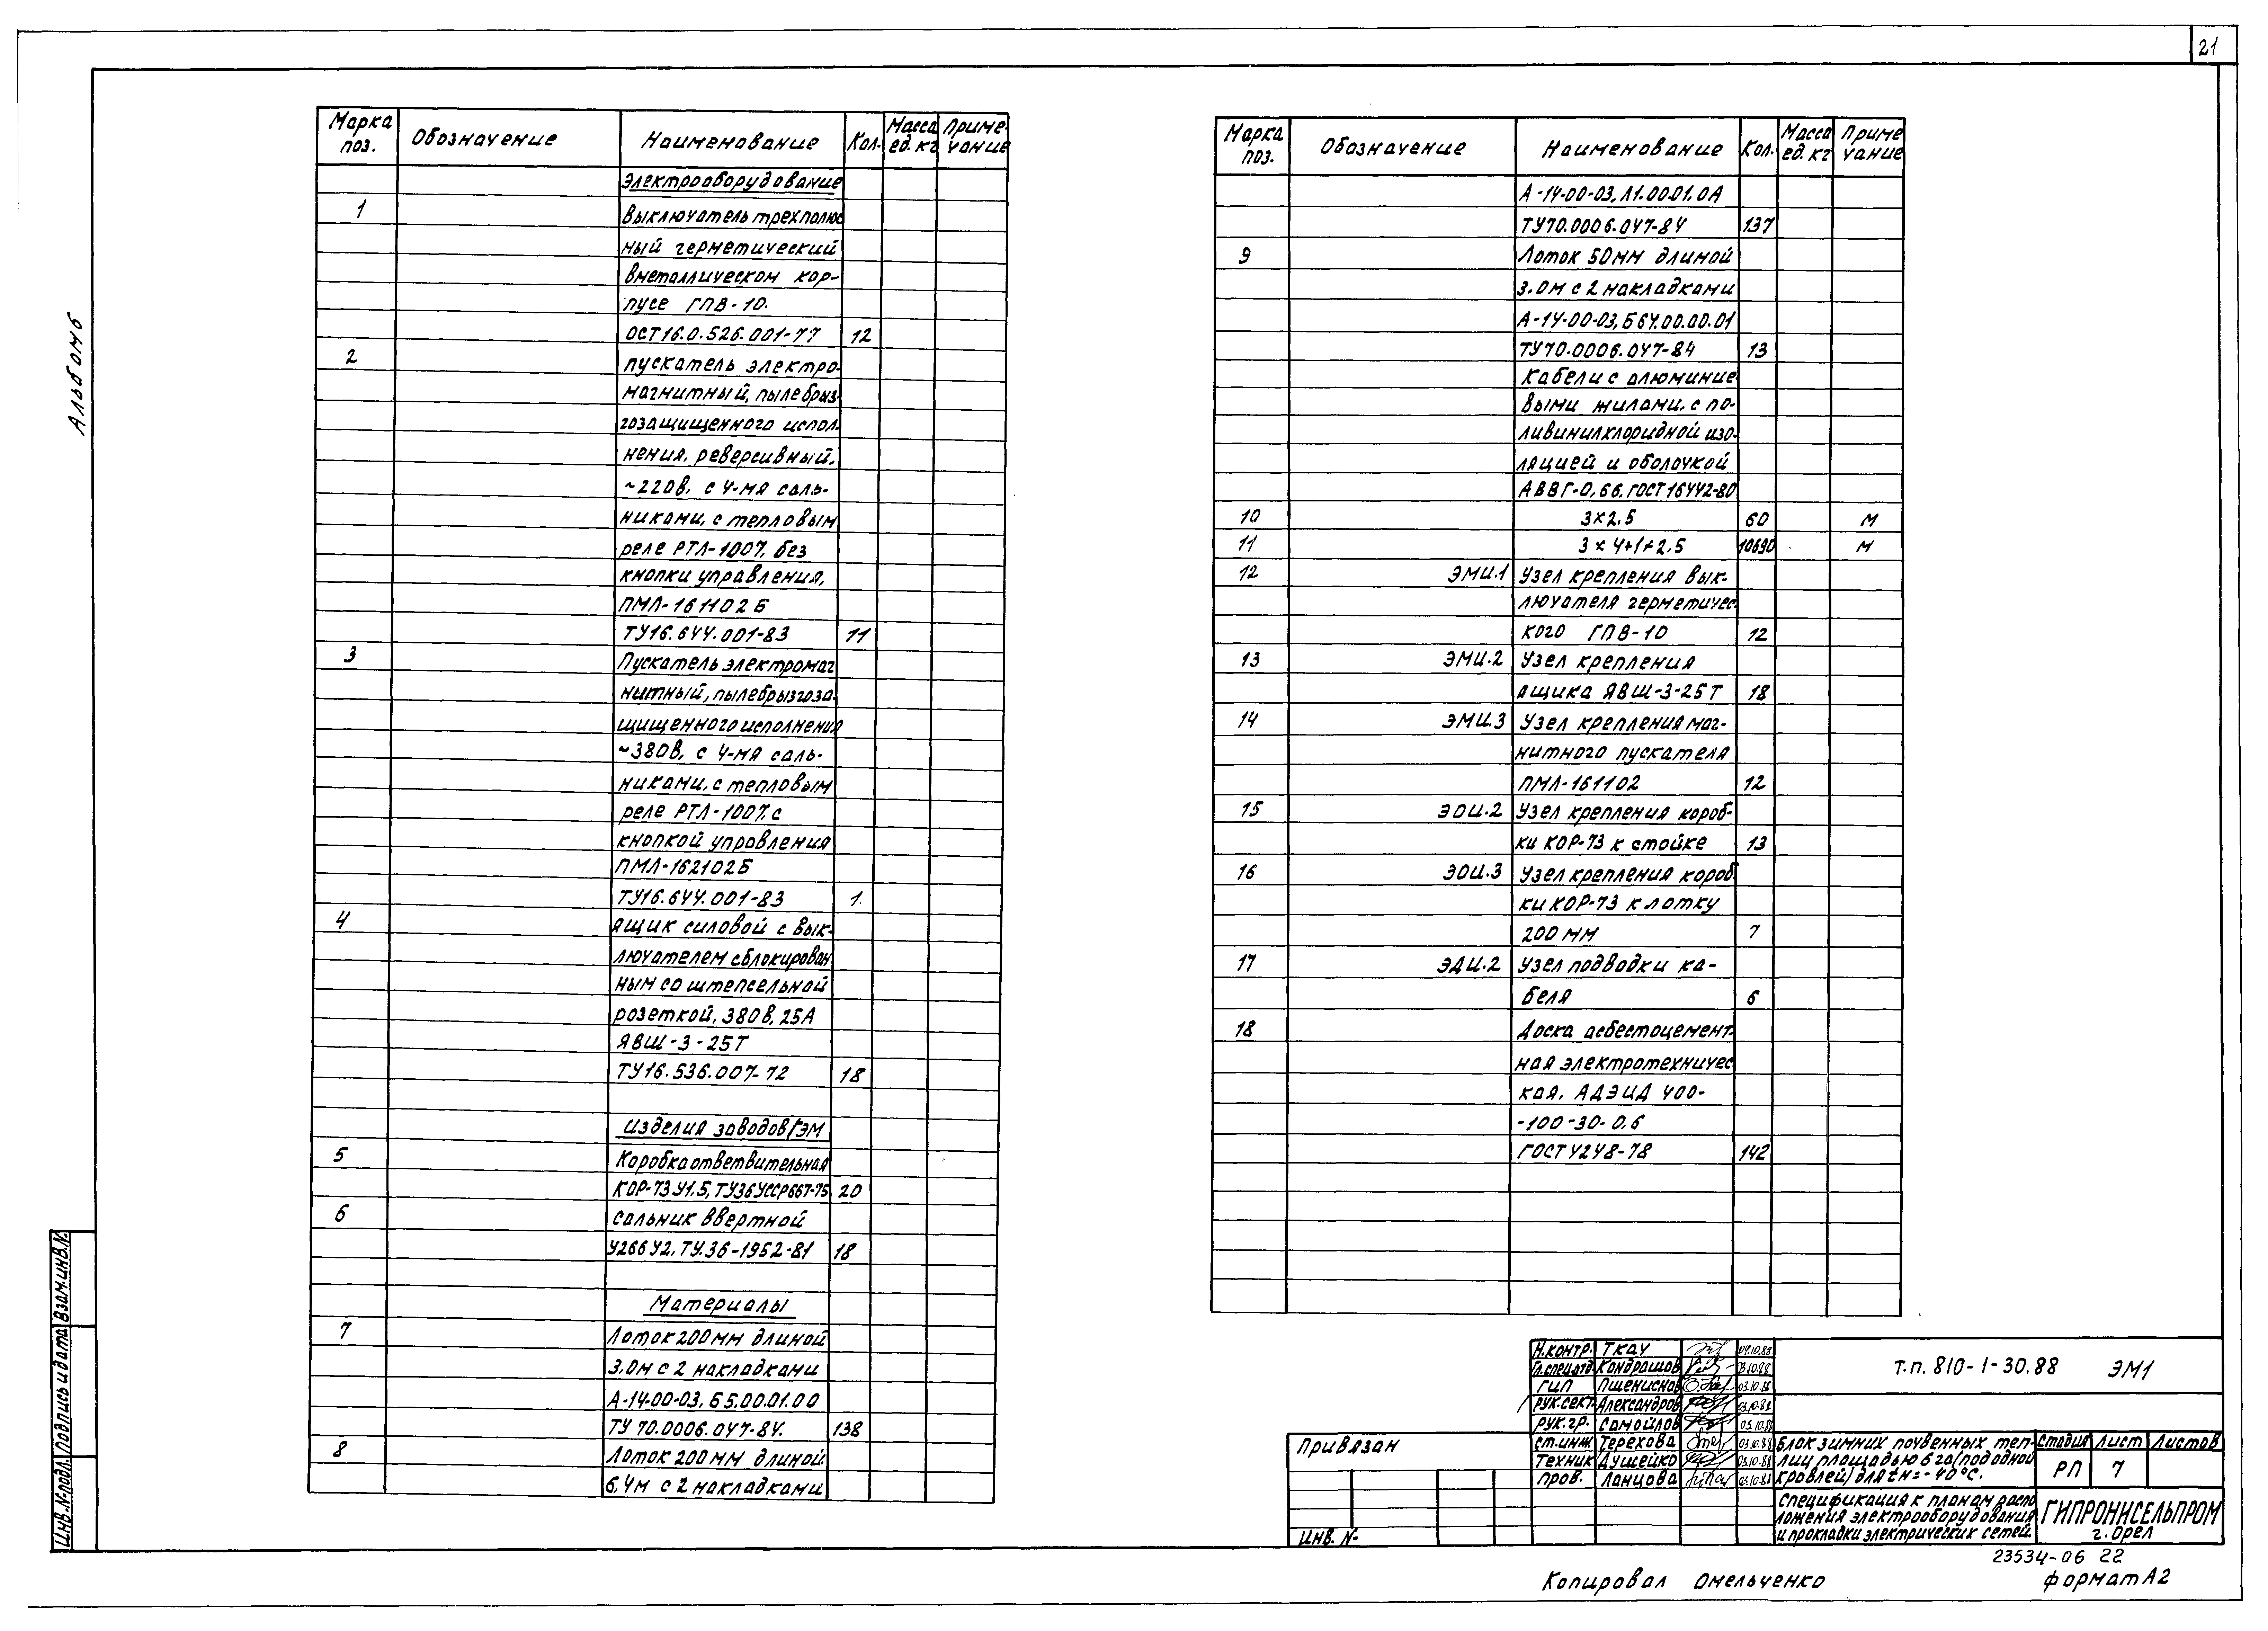 21
Альбом 6
Марка поз. Обозначение Наименование Кол. Масса ед. кг Приме-чание
Электрооборудование
1 Выключатель трехполюс
ный герметический
в металлическом кор-
пусе ГПВ-10.
ОСТ16.0.526.001-77 12
2 пускатель электро-
магнитный, пылебрыз-
гозащищенного испол-
нения, реверсивный,
~220В, с 4-мя саль-
никами, с тепловым
реле РТЛ-1007, без
кнопки управления,
ПМЛ-161102Б
ТУ16.644.001-83 11
3 Пускатель электромаг
нитный, пылебрызгоза-
щищенного исполнения
~380В, с 4-мя саль-
никами, с тепловым
реле РТЛ-1007, с
кнопкой управления
ПМЛ-162102Б
ТУ16.644.001-83 1
4 ящик силовой с вык-
лючателем сблокирован
ным со штепсельной
розеткой, 380В, 25А
ЯВШ-3-25Т
ТУ16.536.007-72 18
Изделия заводов ГЭМ
5 Коробка ответвительная
КОР-73У1.5, ТУ36УССР667-75 20
6 сальник ввертной
У266У2, ТУ.36-1952-81 18
Материалы
7 Лоток 200 мм длиной
3,0м с 2 накладками
А-14-00-03, Б5.00.01.00
ТУ 70.0006.047-84. 138
8 Лоток 200 мм длиной
6,4м с 2 накладками
Марка поз. Обозначение Наименование Кол. Масса ед. кг Приме чание
А-14-00-03, Л1.00.01.0А
ТУ70.0006.047-84 137
9 Лоток 50мм длиной
3,0м с 2 накладками
А-14-00-03, Б64.00.00.01
ТУ70.0006.047-84 13
Кабели с алюминие-
выми жилами, с по-
ливинилхлоридной изо-
ляцией и оболочкой
АВВГ-0,66, ГОСТ16442-80
10 3×2,5 60 м
11 3×4+1×2,5 10690 м
12 ЭМИ.1 Узел крепления вык-
лючателя герметичес-
кого ГПВ-10 12
13 ЭМИ.2 Узел крепления
ящика ЯВШ-3-25Т 18
14 ЭМИ.3 Узел крепления маг-
нитного пускателя
ПМЛ-161102 12
15 ЭОИ.2 Узел крепления короб-
ки КОР-73 к стойке 13
16 ЭОИ.3 Узел крепления короб-
ки КОР-73 к лотку
200 мм 7
17 ЭДИ.2 Узел подводки ка-
беля 6
18 Доска асбестоцемент-
ная электротехничес
кая, АДЭИД 400-
-100-30-0,6
ГОСТ 4248-78 142
Н.контр. Ткач 04.10.88
Гл.спец.отд. Кондрашов 3.10.88
ГИП Пшениснов 03.10.88
Рук.сект. Александров 03.10.88
Рук.гр. Самойлов 03.10.88
ст.инж. Терехова 03.10.88
Техник Душейко 03.10.88
пров. Ланцова 03.10.88
Т.п. 810-1-30.88 ЭМ1
Привязан
Инв. №
Блок зимних почвенных теп-
лиц площадью 6 га (под одной
кровлей) для tн=-40°С.
Стадия Лист Листов
РП 7
Спецификация к планам распо
ложения электрооборудования
и прокладки электрических сетей.
ГИПРОНИСЕЛЬПРОМ
г. Орел
23534-06 22
Копировал Омельченко
формат А2
Инв.№подл. Подпись и дата Взам.инв.№